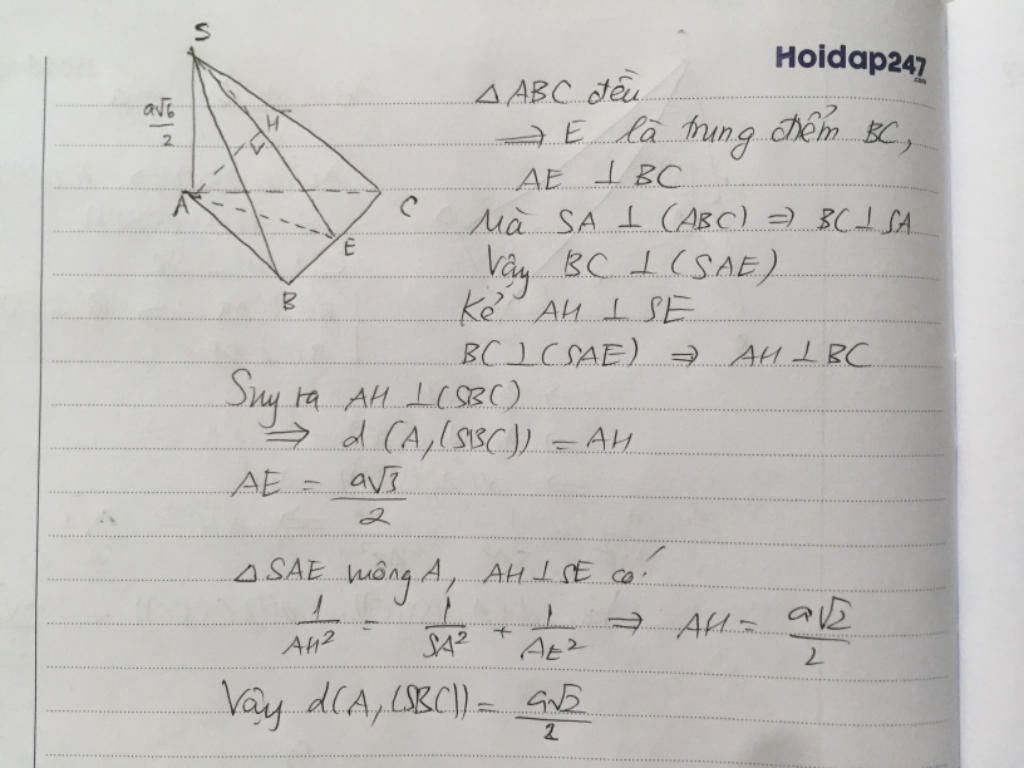 Hoidap247
.com
S
a√6/2
H
A
C
E
B
△ABC đều
⟹ E là trung điểm BC,
AE ⊥ BC
Mà SA ⊥ (ABC) ⇒ BC ⊥ SA
Vậy BC ⊥ (SAE)
Kẻ AH ⊥ SE
BC ⊥ (SAE) ⇒ AH ⊥ BC
Suy ra AH ⊥ (SBC)
⟹ d(A,(SBC)) = AH
AE = a√3/2
△SAE vuông A, AH ⊥ SE có:
1/AH² = 1/SA² + 1/AE² ⇒ AH = a√2/2
Vậy d(A,(SBC)) = a√2/2